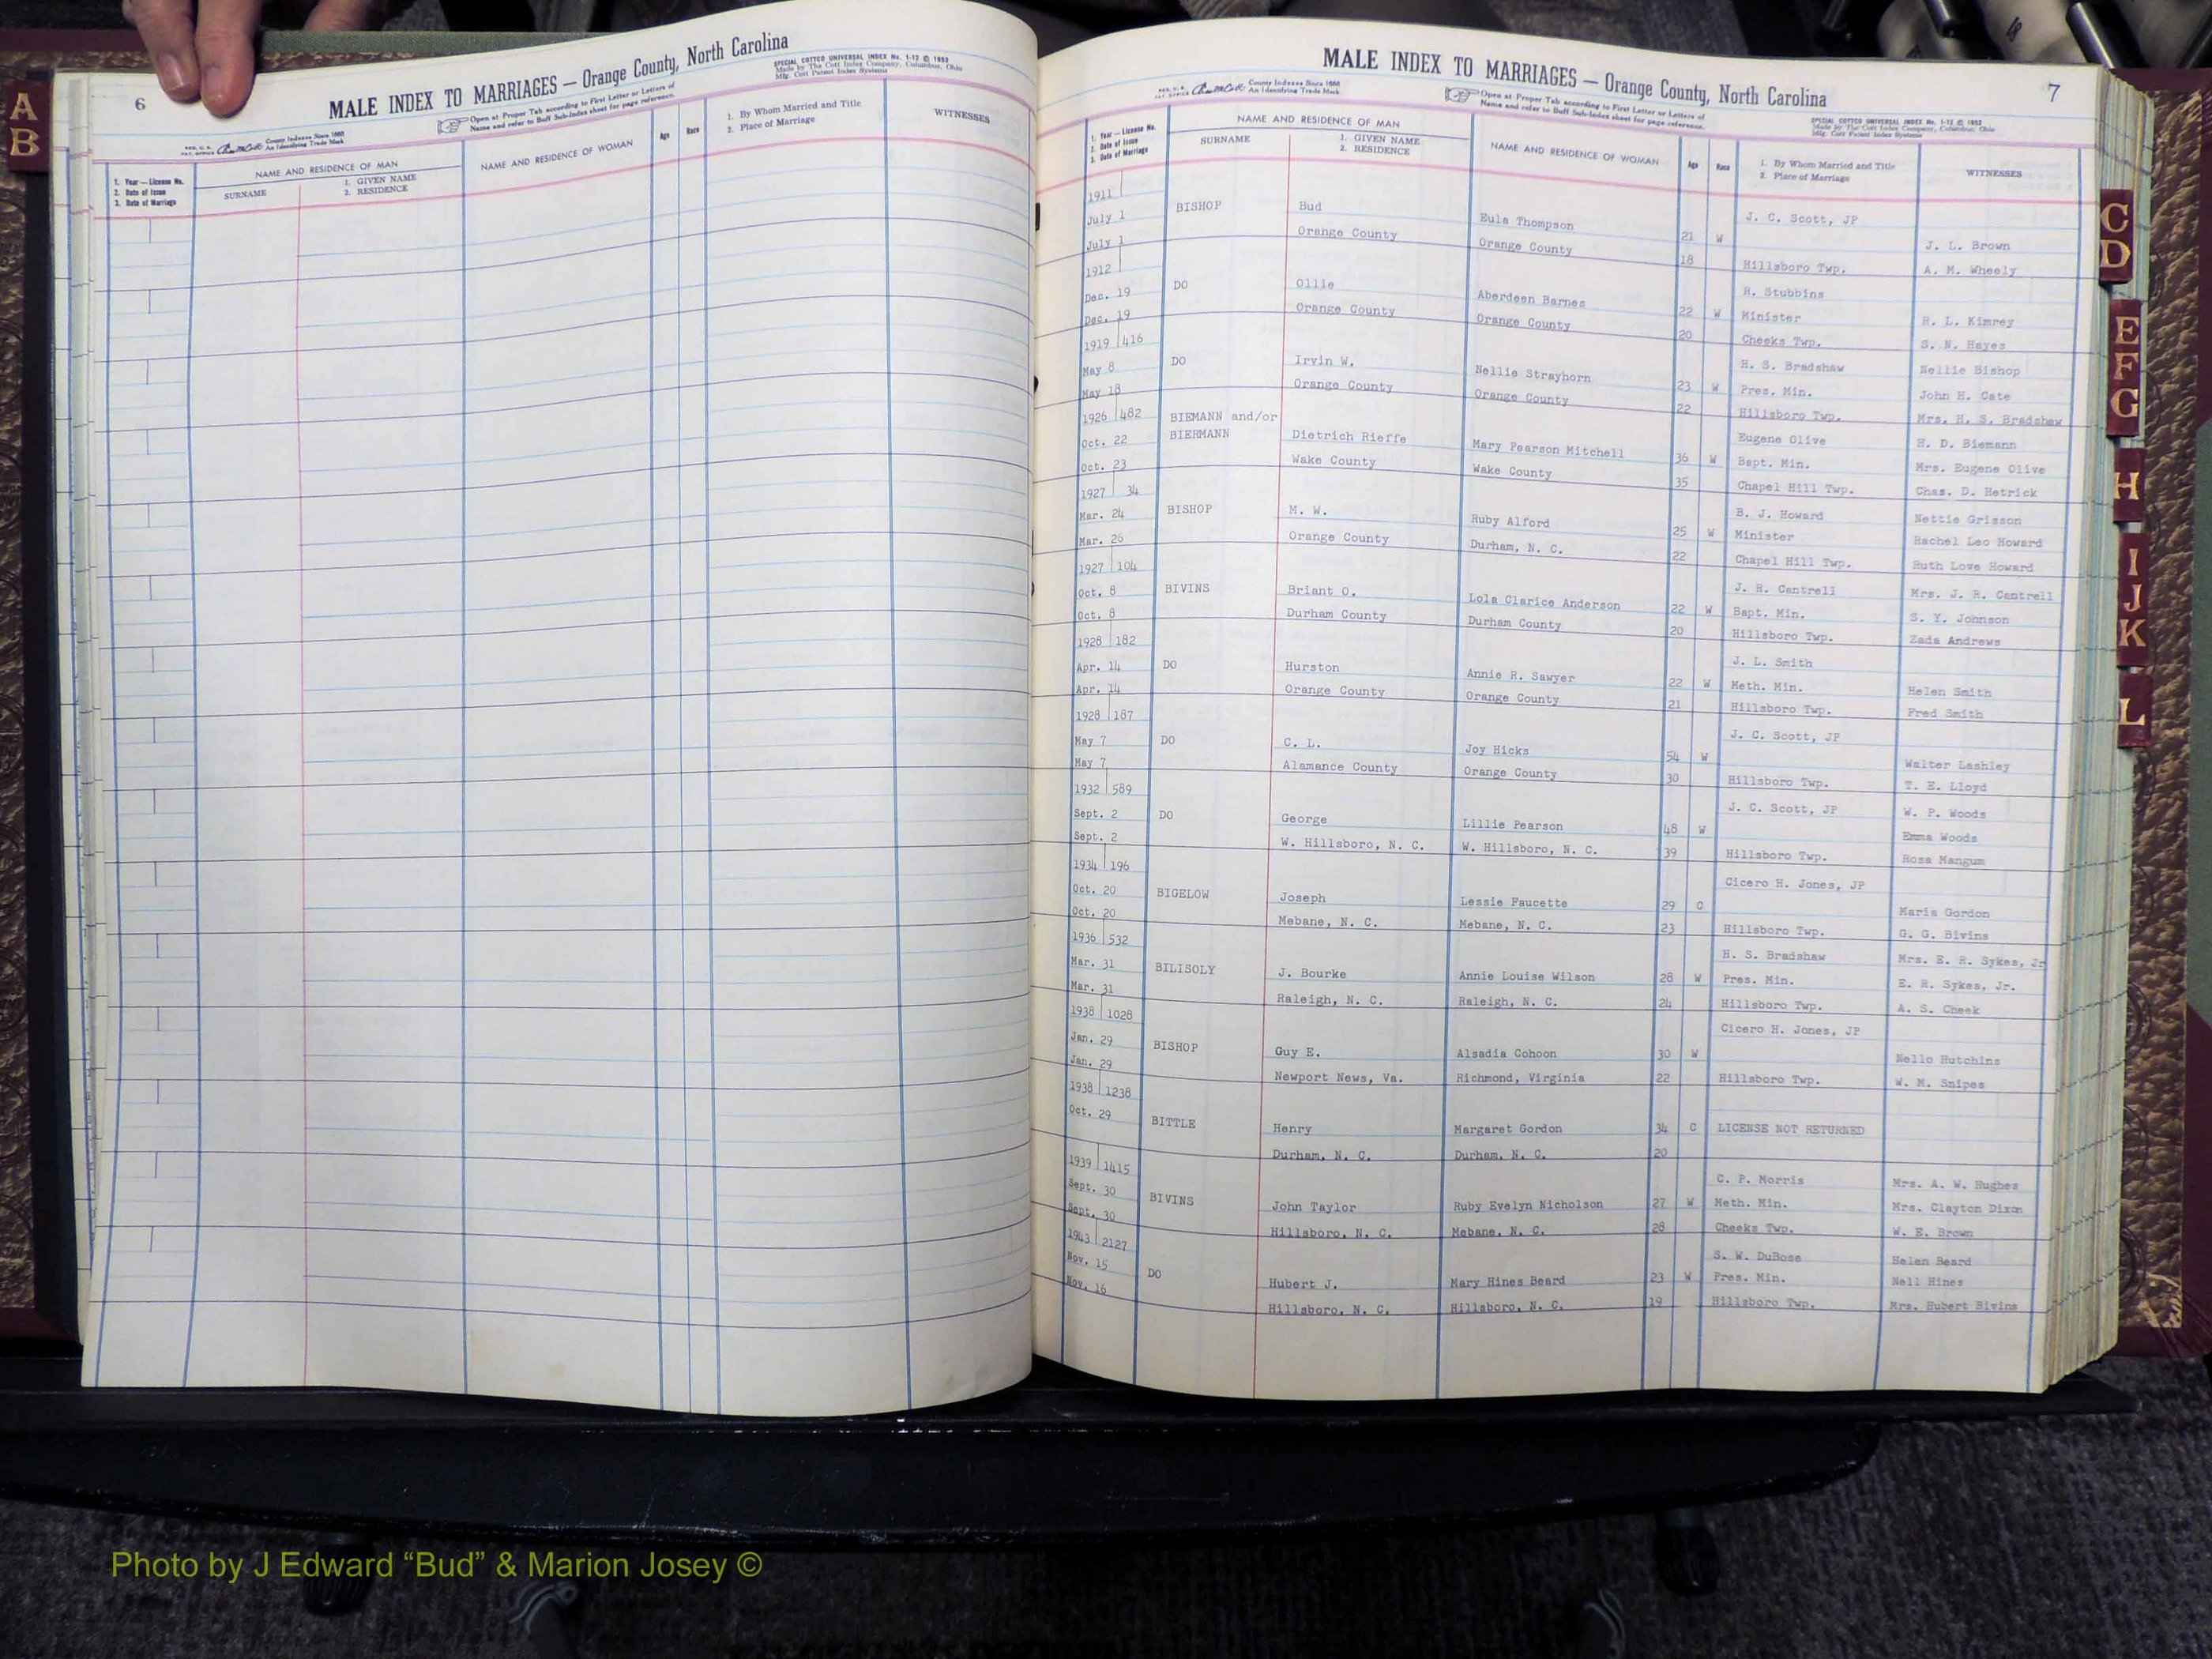 A
B
6
MALE INDEX TO MARRIAGES — Orange County, North Carolina
SPECIAL COTTCO UNIVERSAL INDEX No. 1-12 © 1953
Made by The Cott Index Company, Columbus, Ohio
Mfg. Cott Patent Index Systems
County Indexes Since 1888
An Identifying Trade Mark
Open at Proper Tab according to First Letter or Letters of
Name and refer to Buff Sub-Index sheet for page reference.
1. Year — License No.
2. Date of Issue
3. Date of Marriage
NAME AND RESIDENCE OF MAN
SURNAME
1. GIVEN NAME
2. RESIDENCE
NAME AND RESIDENCE OF WOMAN
Age
Race
1. By Whom Married and Title
2. Place of Marriage
WITNESSES
MALE INDEX TO MARRIAGES — Orange County, North Carolina
7
County Indexes Since 1888
An Identifying Trade Mark
Open at Proper Tab according to First Letter or Letters of
Name and refer to Buff Sub-Index sheet for page reference.
SPECIAL COTTCO UNIVERSAL INDEX No. 1-12 © 1953
Made by The Cott Index Company, Columbus, Ohio
Mfg. Cott Patent Index Systems
1. Year — License No.
2. Date of Issue
3. Date of Marriage
NAME AND RESIDENCE OF MAN
SURNAME
1. GIVEN NAME
2. RESIDENCE
NAME AND RESIDENCE OF WOMAN
Age
Race
1. By Whom Married and Title
2. Place of Marriage
WITNESSES
1911
July 1 BISHOP Bud Eula Thompson 21 W J. C. Scott, JP J. L. Brown
July 1 Orange County Orange County 18 Hillsboro Twp. A. M. Wheely
1912 R. Stubbins
Dec. 19 DO Ollie Aberdeen Barnes 22 W Minister R. L. Kimrey
Dec. 19 Orange County Orange County 20 Cheeks Twp. S. N. Hayes
1919 416 H. S. Bradshaw Nellie Bishop
May 8 DO Irvin W. Nellie Strayhorn 23 W Pres. Min. John H. Cate
May 18 Orange County Orange County 22 Hillsboro Twp. Mrs. H. S. Bradshaw
1926 482 BIEMANN and/or Eugene Olive H. D. Biemann
Oct. 22 BIERMANN Dietrich Rieffe Mary Pearson Mitchell 36 W Bapt. Min. Mrs. Eugene Olive
Oct. 23 Wake County Wake County 35 Chapel Hill Twp. Chas. D. Hetrick
1927 34 B. J. Howard Nettie Grisson
Mar. 24 BISHOP M. W. Ruby Alford 25 W Minister Rachel Leo Howard
Mar. 26 Orange County Durham, N. C. 22 Chapel Hill Twp. Ruth Love Howard
1927 104 J. R. Cantrell Mrs. J. R. Cantrell
Oct. 8 BIVINS Briant O. Lola Clarice Anderson 22 W Bapt. Min. S. Y. Johnson
Oct. 8 Durham County Durham County 20 Hillsboro Twp. Zada Andrews
1928 182 J. L. Smith
Apr. 14 DO Hurston Annie R. Sawyer 22 W Meth. Min. Helen Smith
Apr. 14 Orange County Orange County 21 Hillsboro Twp. Fred Smith
1928 187 J. C. Scott, JP
May 7 DO C. L. Joy Hicks 54 W Walter Lashley
May 7 Alamance County Orange County 30 Hillsboro Twp. T. E. Lloyd
1932 589 J. C. Scott, JP W. P. Woods
Sept. 2 DO George Lillie Pearson 48 W Emma Woods
Sept. 2 W. Hillsboro, N. C. W. Hillsboro, N. C. 39 Hillsboro Twp. Rosa Mangum
1934 196 Cicero H. Jones, JP
Oct. 20 BIGELOW Joseph Lessie Faucette 29 C Maria Gordon
Oct. 20 Mebane, N. C. Mebane, N. C. 23 Hillsboro Twp. G. G. Bivins
1936 532 H. S. Bradshaw Mrs. E. R. Sykes, Jr
Mar. 31 BILISOLY J. Bourke Annie Louise Wilson 28 W Pres. Min. E. R. Sykes, Jr.
Mar. 31 Raleigh, N. C. Raleigh, N. C. 24 Hillsboro Twp. A. S. Cheek
1938 1028 Cicero H. Jones, JP
Jan. 29 BISHOP Guy E. Alsadia Cohoon 30 W Nello Hutchins
Jan. 29 Newport News, Va. Richmond, Virginia 22 Hillsboro Twp. W. M. Snipes
1938 1238
Oct. 29 BITTLE Henry Margaret Gordon 34 C LICENSE NOT RETURNED
Durham, N. C. Durham, N. C. 20
1939 1415 C. P. Morris Mrs. A. W. Hughes
Sept. 30 BIVINS John Taylor Ruby Evelyn Nicholson 27 W Meth. Min. Mrs. Clayton Dixon
Sept. 30 Hillsboro, N. C. Mebane, N. C. 28 Cheeks Twp. W. E. Brown
1943 2127 S. W. DuBose Helen Beard
Nov. 15 DO Hubert J. Mary Hines Beard 23 W Pres. Min. Nell Hines
Nov. 16 Hillsboro, N. C. Hillsboro, N. C. 19 Hillsboro Twp. Mrs. Hubert Bivins
C
D
E
F
G
H
I
J
K
L
Photo by J Edward “Bud” & Marion Josey ©